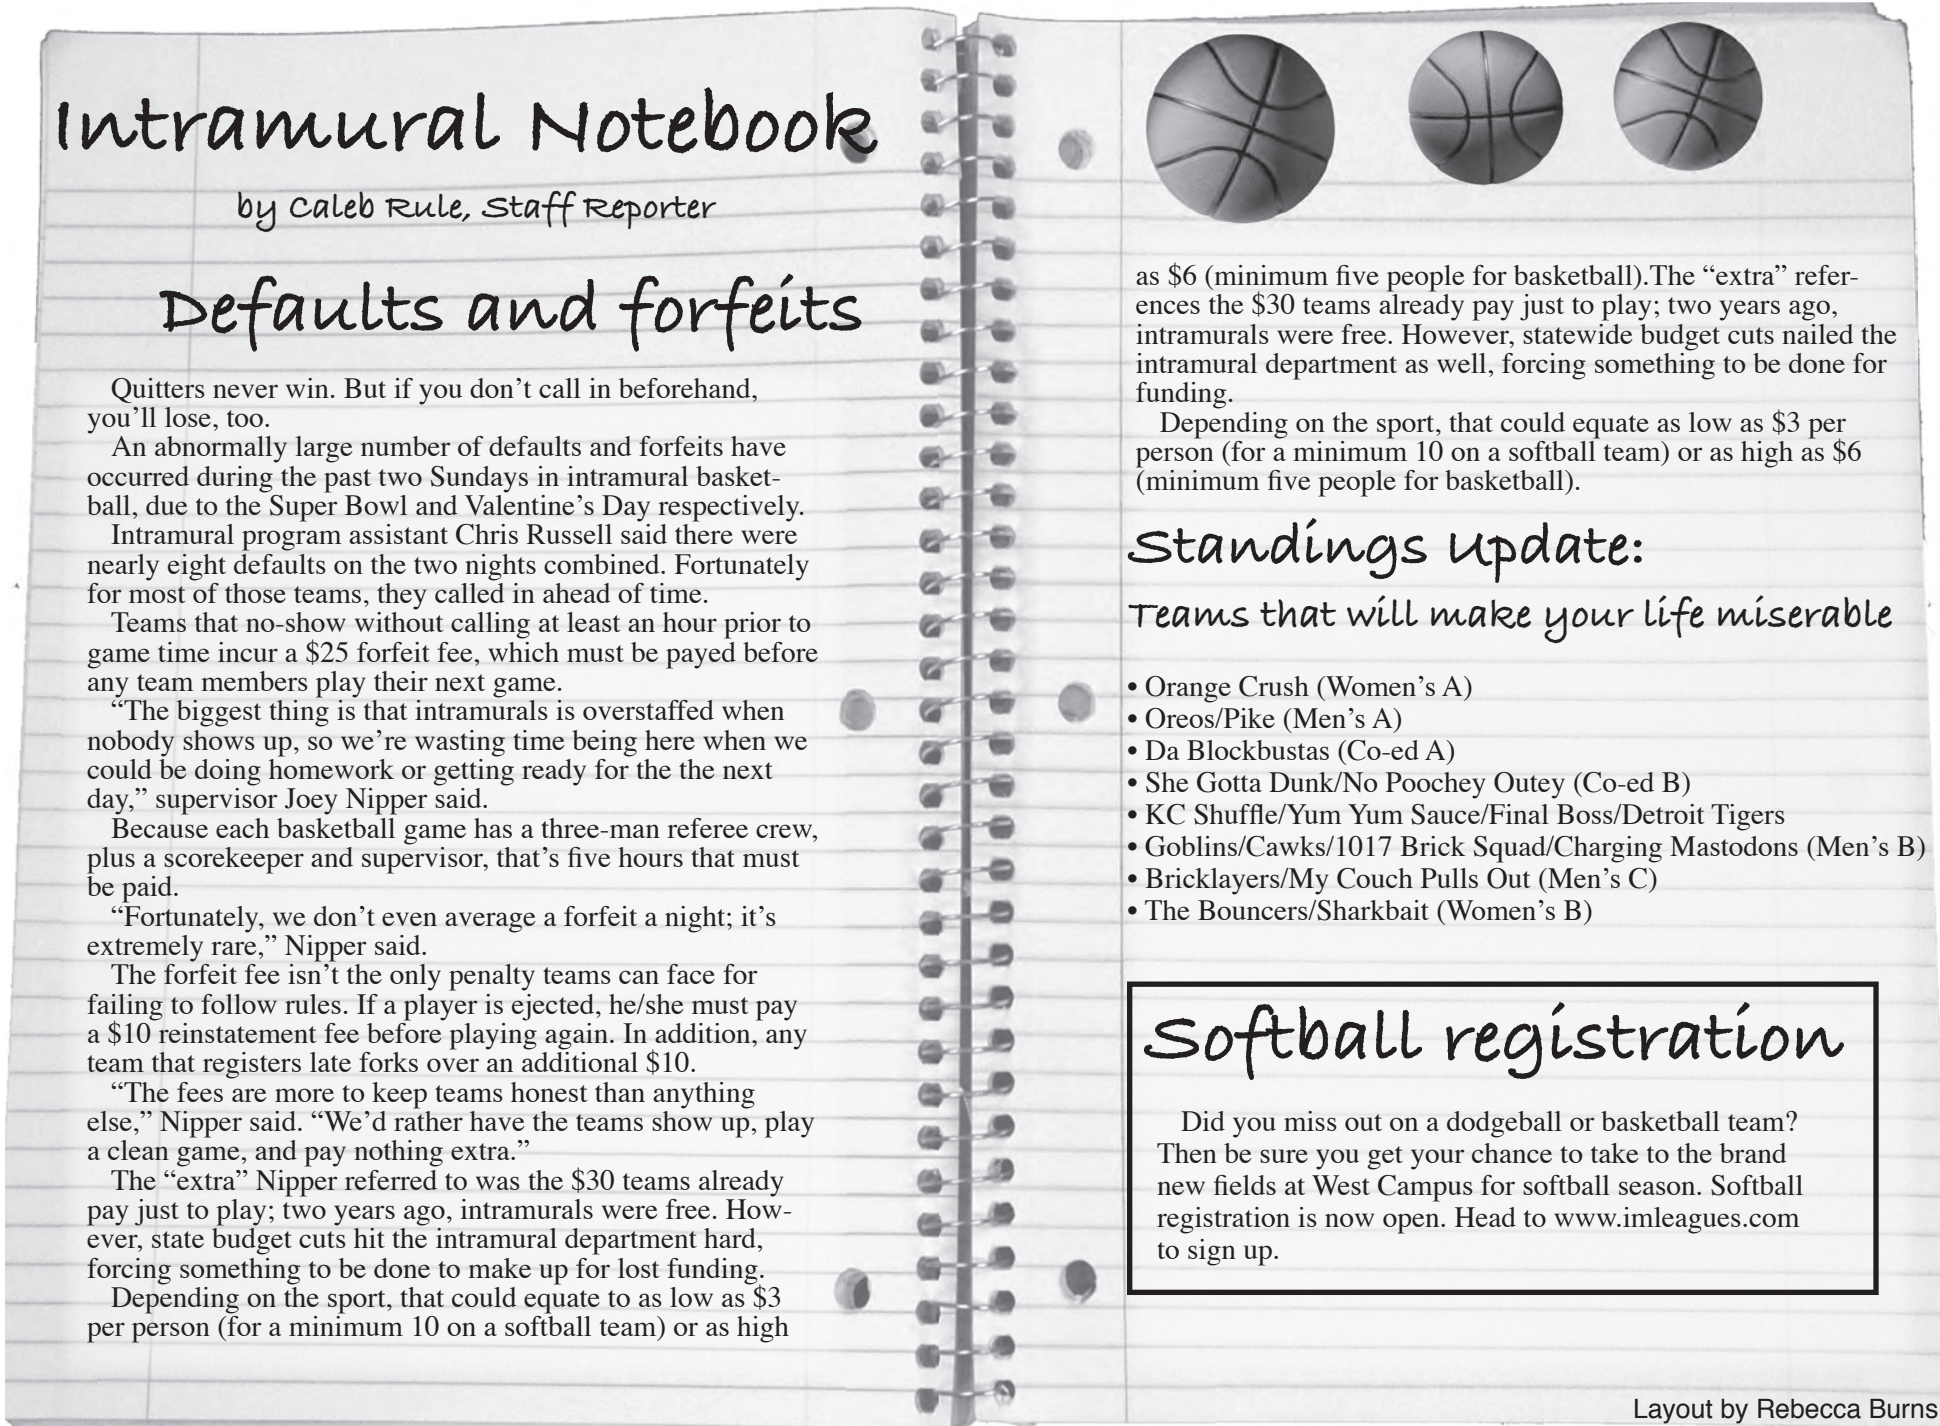 Intramural Notebook
by Caleb Rule, Staff Reporter
Defaults and forfeits
Quitters never win. But if you don’t call in beforehand,
you’ll lose, too.
An abnormally large number of defaults and forfeits have
occurred during the past two Sundays in intramural basket-
ball, due to the Super Bowl and Valentine’s Day respectively.
Intramural program assistant Chris Russell said there were
nearly eight defaults on the two nights combined. Fortunately
for most of those teams, they called in ahead of time.
Teams that no-show without calling at least an hour prior to
game time incur a $25 forfeit fee, which must be payed before
any team members play their next game.
“The biggest thing is that intramurals is overstaffed when
nobody shows up, so we’re wasting time being here when we
could be doing homework or getting ready for the the next
day,” supervisor Joey Nipper said.
Because each basketball game has a three-man referee crew,
plus a scorekeeper and supervisor, that’s five hours that must
be paid.
“Fortunately, we don’t even average a forfeit a night; it’s
extremely rare,” Nipper said.
The forfeit fee isn’t the only penalty teams can face for
failing to follow rules. If a player is ejected, he/she must pay
a $10 reinstatement fee before playing again. In addition, any
team that registers late forks over an additional $10.
“The fees are more to keep teams honest than anything
else,” Nipper said. “We’d rather have the teams show up, play
a clean game, and pay nothing extra.”
The “extra” Nipper referred to was the $30 teams already
pay just to play; two years ago, intramurals were free. How-
ever, state budget cuts hit the intramural department hard,
forcing something to be done to make up for lost funding.
Depending on the sport, that could equate to as low as $3
per person (for a minimum 10 on a softball team) or as high
as $6 (minimum five people for basketball).The “extra” refer-
ences the $30 teams already pay just to play; two years ago,
intramurals were free. However, statewide budget cuts nailed the
intramural department as well, forcing something to be done for
funding.
Depending on the sport, that could equate as low as $3 per
person (for a minimum 10 on a softball team) or as high as $6
(minimum five people for basketball).
Standings Update:
Teams that will make your life miserable
• Orange Crush (Women’s A)
• Oreos/Pike (Men’s A)
• Da Blockbustas (Co-ed A)
• She Gotta Dunk/No Poochey Outey (Co-ed B)
• KC Shuffle/Yum Yum Sauce/Final Boss/Detroit Tigers
• Goblins/Cawks/1017 Brick Squad/Charging Mastodons (Men’s B)
• Bricklayers/My Couch Pulls Out (Men’s C)
• The Bouncers/Sharkbait (Women’s B)
Softball registration
Did you miss out on a dodgeball or basketball team?
Then be sure you get your chance to take to the brand
new fields at West Campus for softball season. Softball
registration is now open. Head to www.imleagues.com
to sign up.
Layout by Rebecca Burns